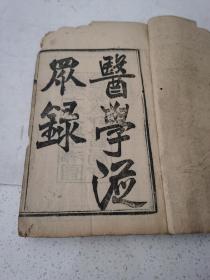 醫學從
眾錄